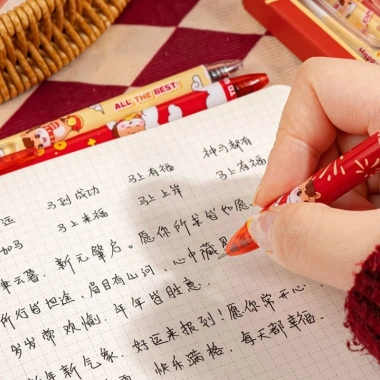 ALL THE BEST!
运 马到成功 马上有福 神马都有
加马 马上来福 马上上岸 马上有福
新元肇启。愿你所望皆如愿
所行皆坦途，眉目有山河，心中藏
岁岁常欢愉，年年皆胜意。
年新气象，好运来报到！愿你常开心
快乐满格，每天都幸福。